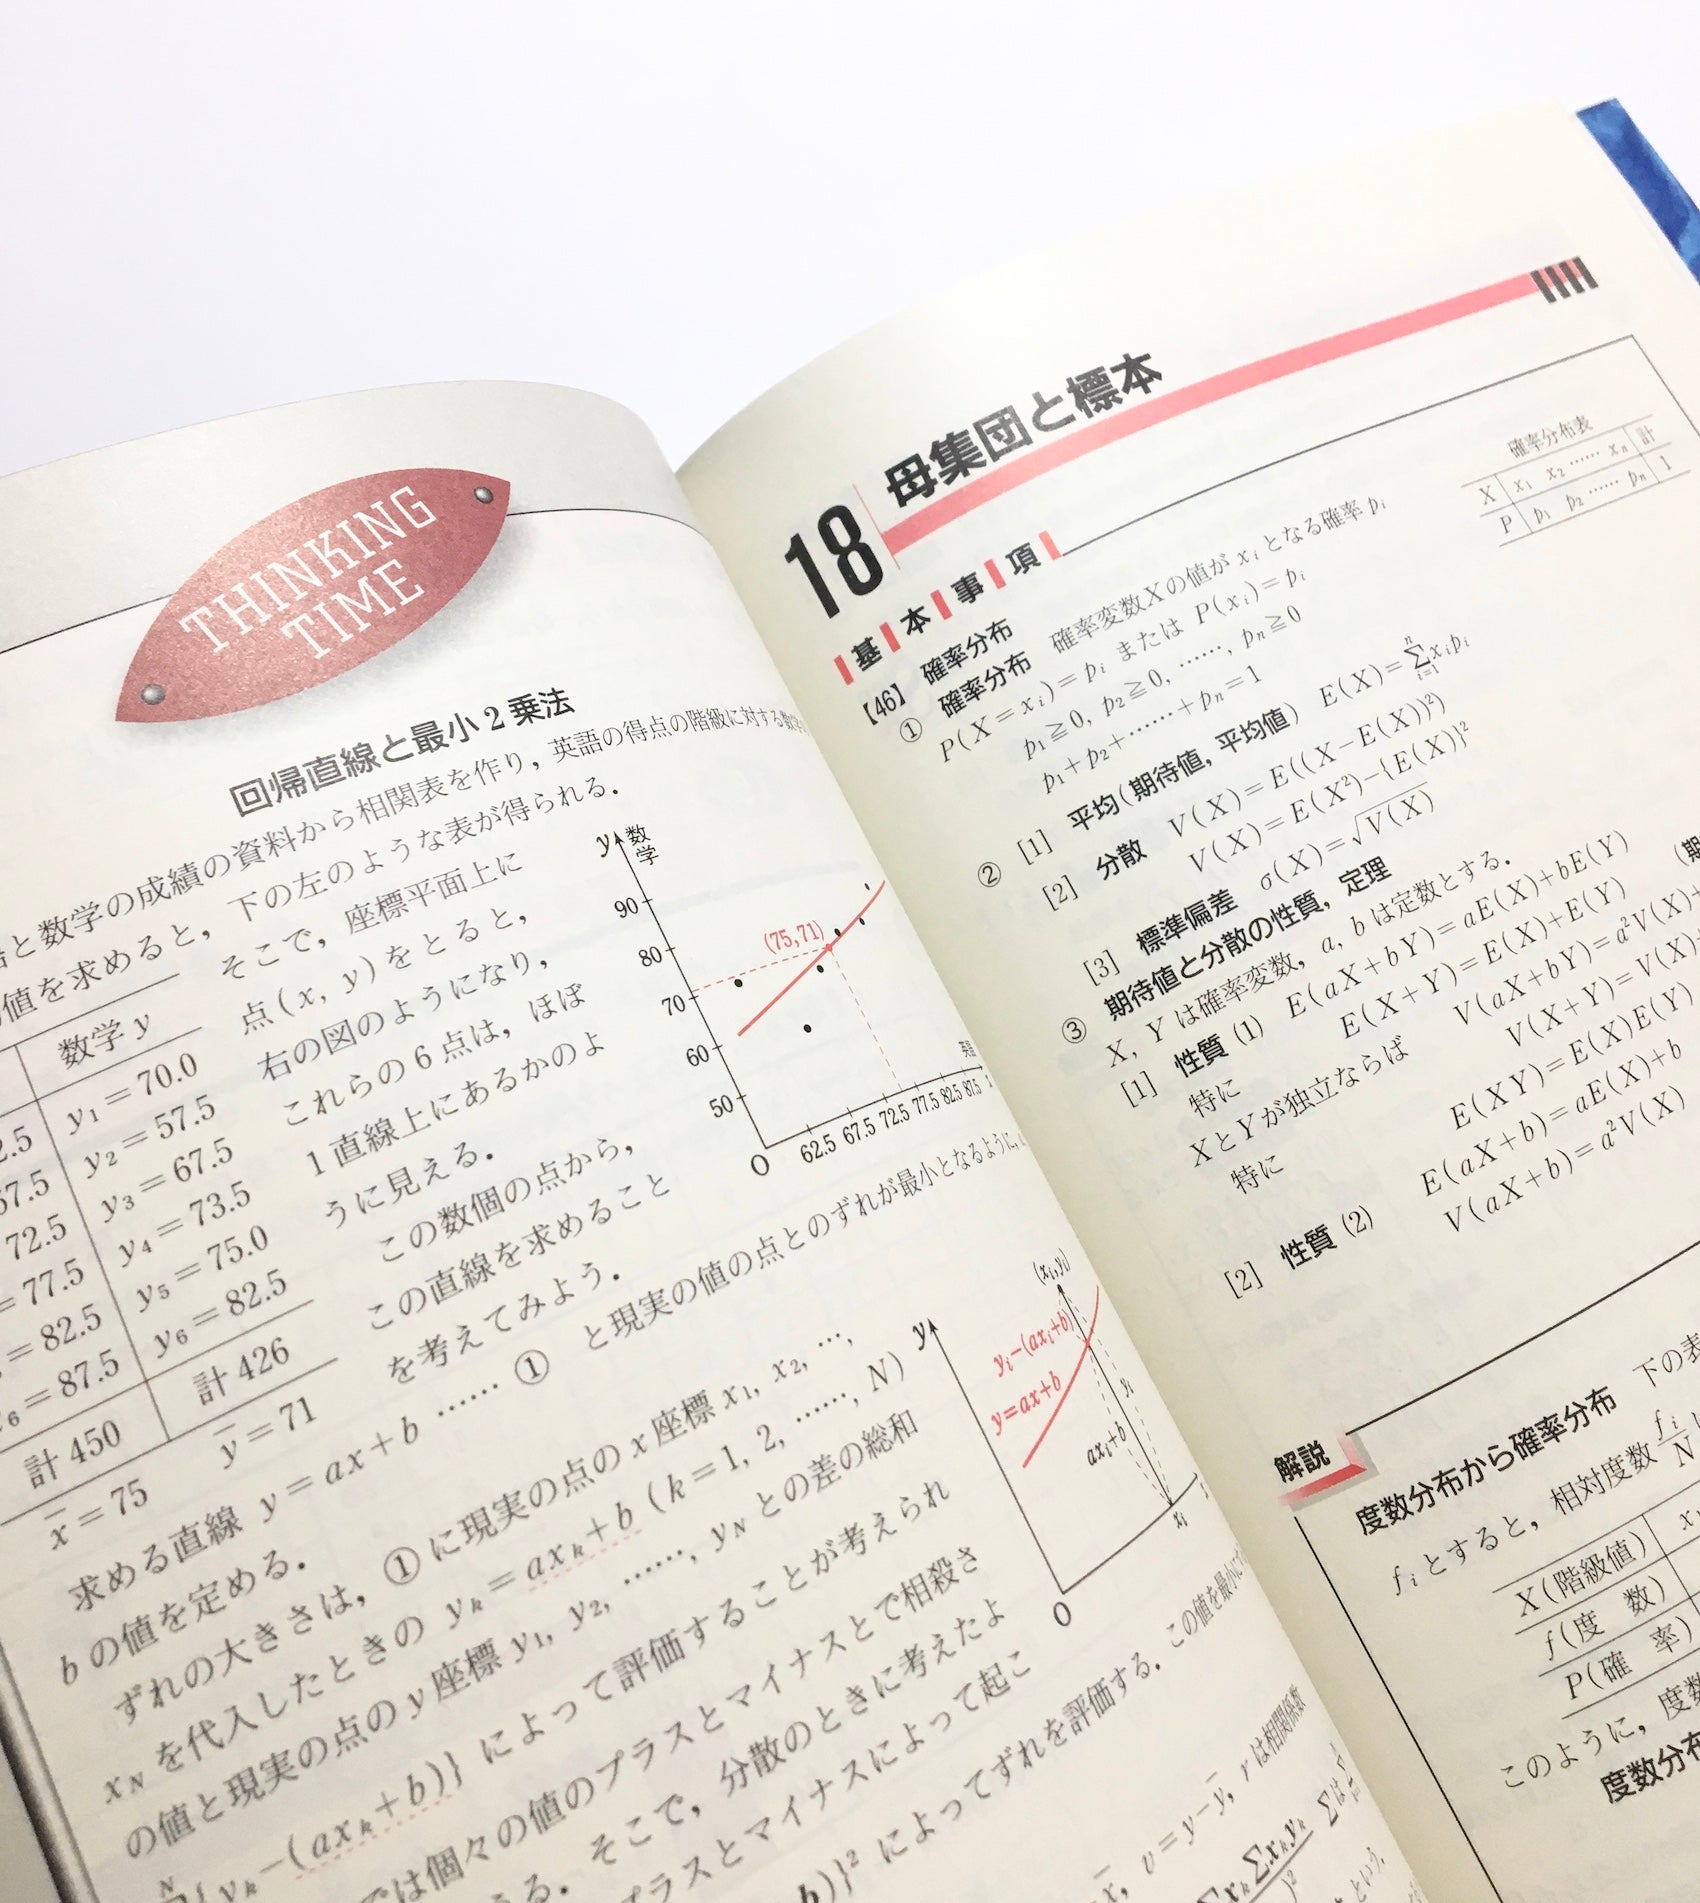 THINKING
TIME
回帰直線と最小2乗法
と数学の成績の資料から相関表を作り，英語の得点の階級に対する
値を求めると，下の左のような表が得られる．
そこで，座標平面上に
点(x, y)をとると，
右の図のようになり，
これらの6点は，ほぼ
1直線上にあるかのよ
うに見える．
この数個の点から，
この直線を求めること
を考えてみよう．
数学 y
y₁＝70.0
y₂＝57.5
y₃＝67.5
y₄＝73.5
y₅＝75.0
y₆＝82.5
計 426
y̅＝71
2.5
67.5
72.5
＝77.5
＝82.5
₆＝87.5
計 450
x̅＝75
y
数学
90
80
70
60
50
(75,71)
O
62.5 67.5 72.5 77.5 82.5 87.5
求める直線 y＝ax＋b ……① と現実の値の点とのずれが最小となるように，
bの値を定める．
ずれの大きさは，①に現実の点のx座標x₁, x₂, …,
x_Nを代入したときの y_k＝ax_k＋b (k＝1, 2, ……, N)
の値と現実の点のy座標y₁, y₂, ……, y_Nとの差の総和
{y_k－(ax_k＋b)} によって評価することが考えられ
では個々の値のプラスとマイナスとで相殺さ
る．そこで，分散のときに考えたよ
プラスとマイナスによって起こ
b)}² によってずれを評価する．この値を最小に
y
(x₁,y₁)
y₁－(ax₁＋b)
y＝ax＋b
y₁
ax₁＋b
O
x₁
x̅, v＝y－y̅, r は相関係数
Σx_k y_k
という．
18
母集団と標本
基本事項
【46】 確率分布
① 確率分布 確率変数Xの値がx_iとなる確率p_i
P(X＝x_i)＝p_i または P(x_i)＝p_i
p₁≧0, p₂≧0, ……, p_n≧0
p₁＋p₂＋……＋p_n＝1
確率分布表
X x₁ x₂ …… x_n 計
P p₁ p₂ …… p_n 1
② [1] 平均(期待値，平均値) E(X)＝Σ_{i=1}^{n} x_i p_i
[2] 分散 V(X)＝E((X－E(X))²)
V(X)＝E(X²)－{E(X)}²
[3] 標準偏差 σ(X)＝√V(X)
③ 期待値と分散の性質，定理
X, Yは確率変数，a, bは定数とする．
[1] 性質(1) E(aX＋bY)＝aE(X)＋bE(Y)
特に E(X＋Y)＝E(X)＋E(Y)
XとYが独立ならば V(aX＋bY)＝a²V(X)＋
特に V(X＋Y)＝V(X)＋
E(XY)＝E(X)E(Y)
[2] 性質(2) E(aX＋b)＝aE(X)＋b
V(aX＋b)＝a²V(X)
解説
度数分布から確率分布 下の表
f_iとすると，相対度数 f_i/N
X(階級値)
f(度 数)
P(確 率)
このように，度数
度数分布